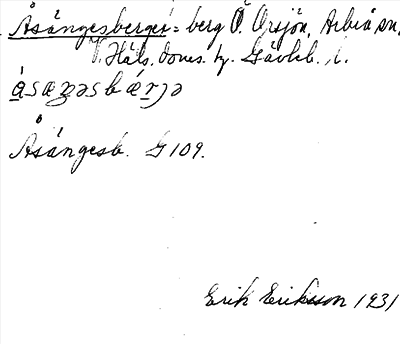 Åsängesberget = berg Ö. Orsjön, Arbrå sn,
V. Häls. doms. tj. Gävleb. l.
åsæŋəsbærjə
Åsängesb. G 109.
Erik Eriksson 1931